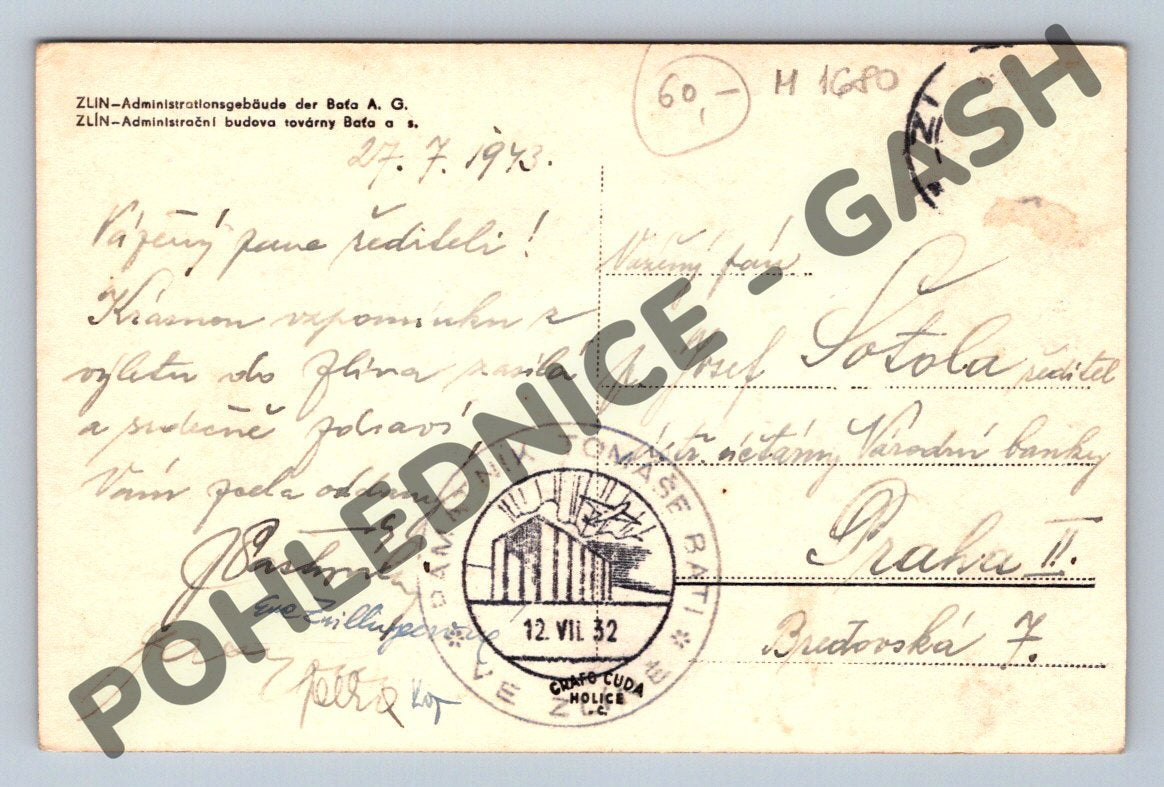 ZLIN—Administrationsgebäude der Baťa A. G.
ZLÍN—Administrační budova továrny Baťa a s.
27. 7. 1943.
Vážený pane řediteli!
Krásnou vzpomínku z
výletu do Zlína zasílá
a srdečně zdraví
Vám zcela oddaný
60,—
M 1680
ZL
Vážený pán
p. Josef Šotola ředitel
účtárny Národní banky
Praha II.
Bredovská 7.
PAMÁTNÍK TOMÁŠE BATI
VE ZLÍNĚ
12. VII. 32
GRAFO ČUDA
HOLICE
POHLEDNICE - GASH